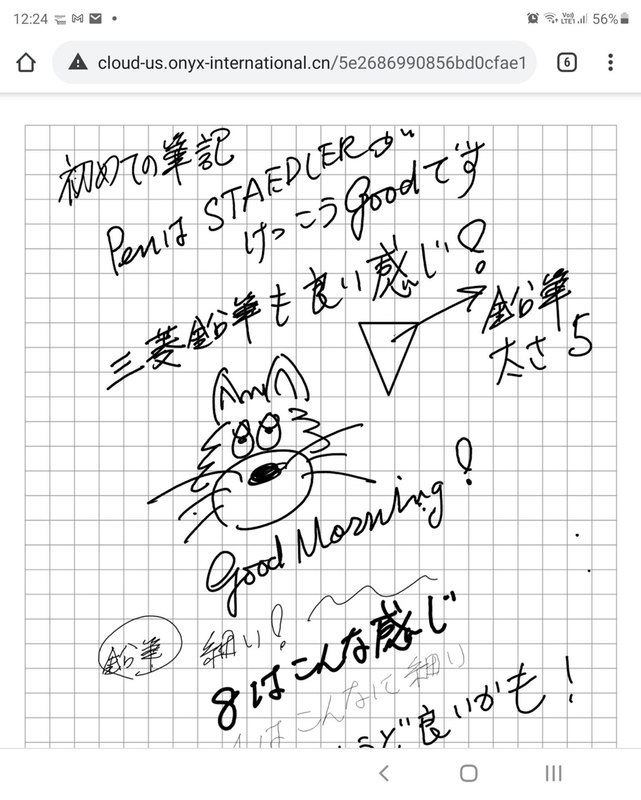 12:24
56%
cloud-us.onyx-international.cn/5e2686990856bd0cfae1
6
初めての筆記
Penは STAEDLERが
けっこうGoodです
三菱鉛筆も良い感じ!
鉛筆
太さ 5
Good Morning!
鉛筆 細い!
8はこんな感じ
はこんなに細い
うど良いかも!